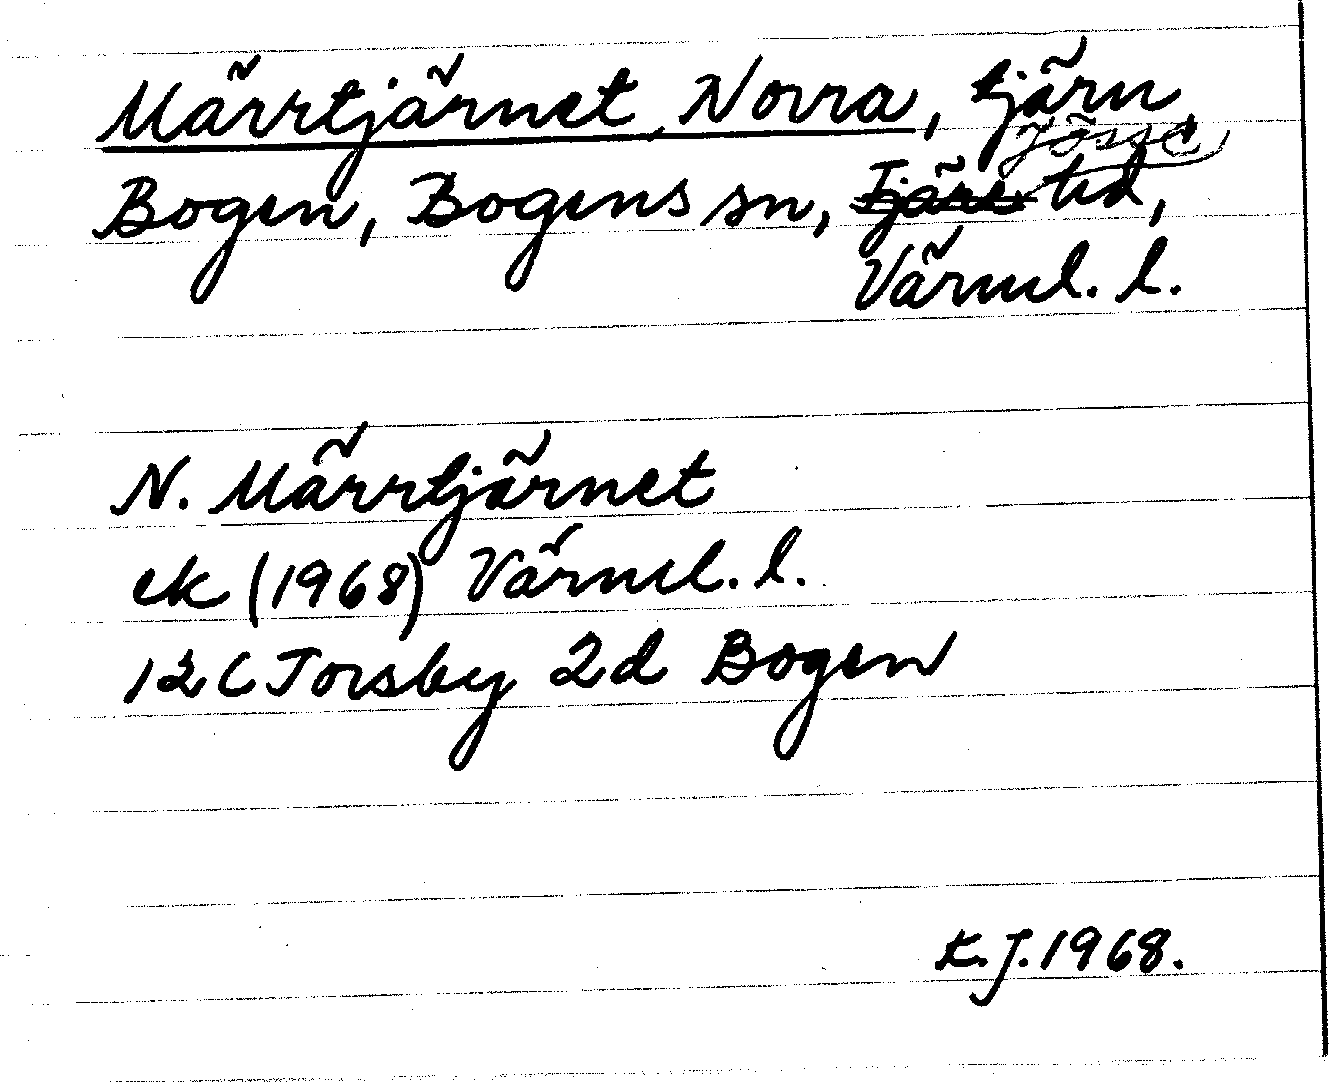 Märrtjärnet, Norra, tjärn
Jösse
Bogen, Bogens sn, Fjäre hd,
Värml. l.
N. Märrtjärnet
ek (1968) Värml. l.
12C Torsby 2d Bogen
K.J. 1968.